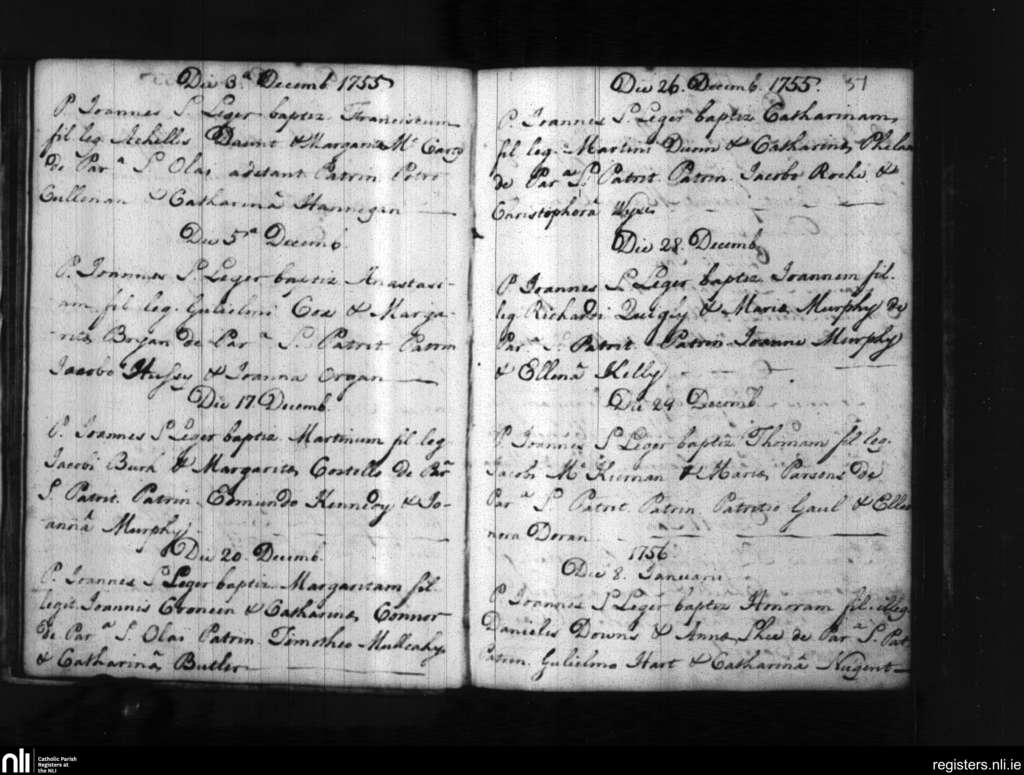 Die 3ª Decemb 1755
P. Joannes St. Leger baptiz. Franciscum
fil leg. Achellis Daunt & Margaritæ Mc Carty
de Parª S. Olai adstant Patrin Petro
Cullenan & Catharinâ Hannegan
Die 5ª Decemb.
P. Joannes St. Leger baptiz Anastasi-
am fil leg. Gulielmi Cox & Marga-
ritæ Bryan de Parª S. Patrit Patrin
Jacobo Hussey & Joanna Organ
Die 17. Decemb.
P. Joannes St Leger baptiz Martinum fil leg.
Jacobi Burk & Margaritæ Costello de Parª
S. Patrit. Patrin Edmundo Kennedy & Jo-
annâ Murphy
Die 20. Decemb.
P. Joannes St Leger baptiz. Margaritam fil.
legit. Joannis Croneen & Catharinæ Connor
de Parª S. Olai Patrin Timotheo Mulcahy
& Catharinâ Butler
Die 26. Decemb. 1755. 51
P. Joannes St. Leger baptiz Catharinam
fil leg. Martini Dunn & Catharinæ Phelan
de Parª S. Patrit. Patrin. Jacobo Roche &
Christophorâ Wyse
Die 28. Decemb
P Joannes St. Leger baptiz Joannem fil.
leg. Richardi Quigly & Mariæ Murphy de
Parª S. Patrit. Patrin Joanne Murphy
& Ellenâ Kelly
Die 29 Decemb
P Joannes St Leger baptiz Thomam fil leg.
Jacobi Mc Kiernan & Mariæ Parsons de
Parª S. Patrit Patrin. Patritio Gaul & Elle
nora Doran
1756
Die 8. Januarii
P. Joannes St Leger baptiz Honoram fil. illeg
Danielis Downs & Annæ Shee de Parª S. Pat
Patrin. Gulielmo Hart & Catharinâ Nugent
nli Catholic Parish
Registers at
the NLI
registers.nli.ie